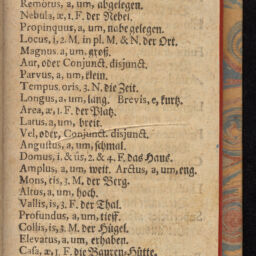 Remotus, a, um, abgelegen.
Nebula, æ, 1. F. der Nebel.
Propinquus, a, um, nahe gelegen.
Locus, i, 2. M. in pl. M. & N. der Ort.
Magnus, a, um, groß.
Aut, oder Conjunct. disjunct.
Parvus, a, um, klein.
Tempus, oris, 3. N. die Zeit.
Longus, a, um, lang. Brevis, e, kurtz.
Area, æ, 1. F. der Platz.
Latus, a, um, breit.
Vel, oder, Conjunct. disjunct.
Angustus, a, um, schmal.
Domus, i & ûs, 2. & 4. F. das Hauß.
Amplus, a, um, weit. Arctus, a, um, eng.
Mons, tis, 3. M. der Berg.
Altus, a, um, hoch.
Vallis, is, 3. F. der Thal.
Profundus, a, um, tieff.
Collis, is, 3. M. der Hügel.
Elevatus, a, um, erhaben.
Casa, æ, 1. F. die Bauren-Hütte.